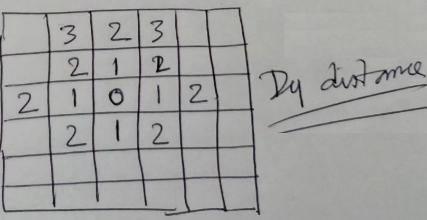 3 2 3
2 1 2
2 1 0 1 2
2 1 2
Dy distance